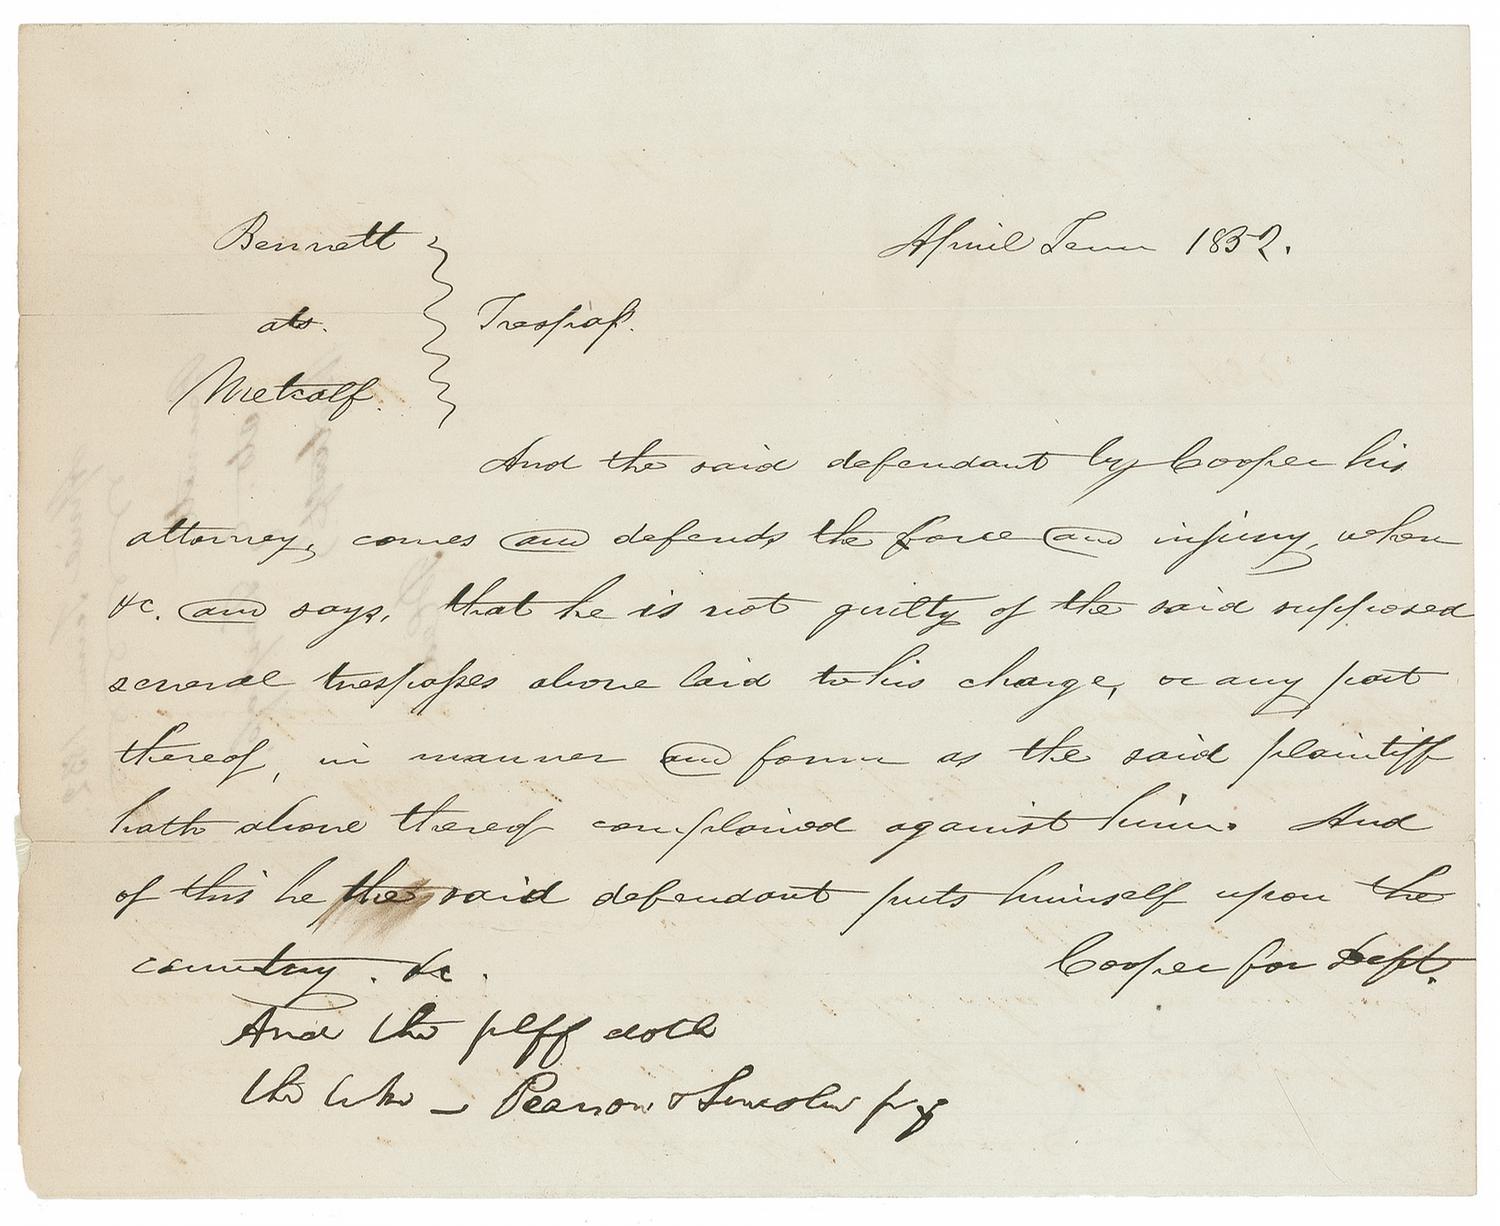 Bennett
ats.
Metcalf.
Trespass.
April Term 1852.
And the said defendant by Cooper his
attorney, comes and defends the force and injury, when
&c. and says, that he is not guilty of the said supposed
several trespasses above laid to his charge, or any part
thereof, in manner and form as the said plaintiff
hath above thereof complained against him. And
of this he the said defendant puts himself upon the
country. &c.
Cooper for Deft.
And the plff doth
the like - Pearson & Lincoln p q